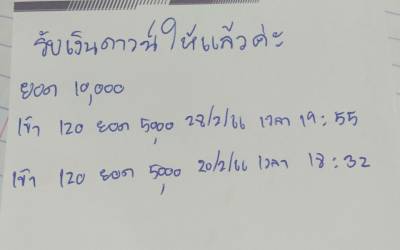 รับเงินดาวน์ให้แล้วค่ะ
ยอด 10,000
เข้า 120 ยอด 5,000 28/2/66 เวลา 19:55
เข้า 120 ยอด 5,000 20/2/66 เวลา 18:32